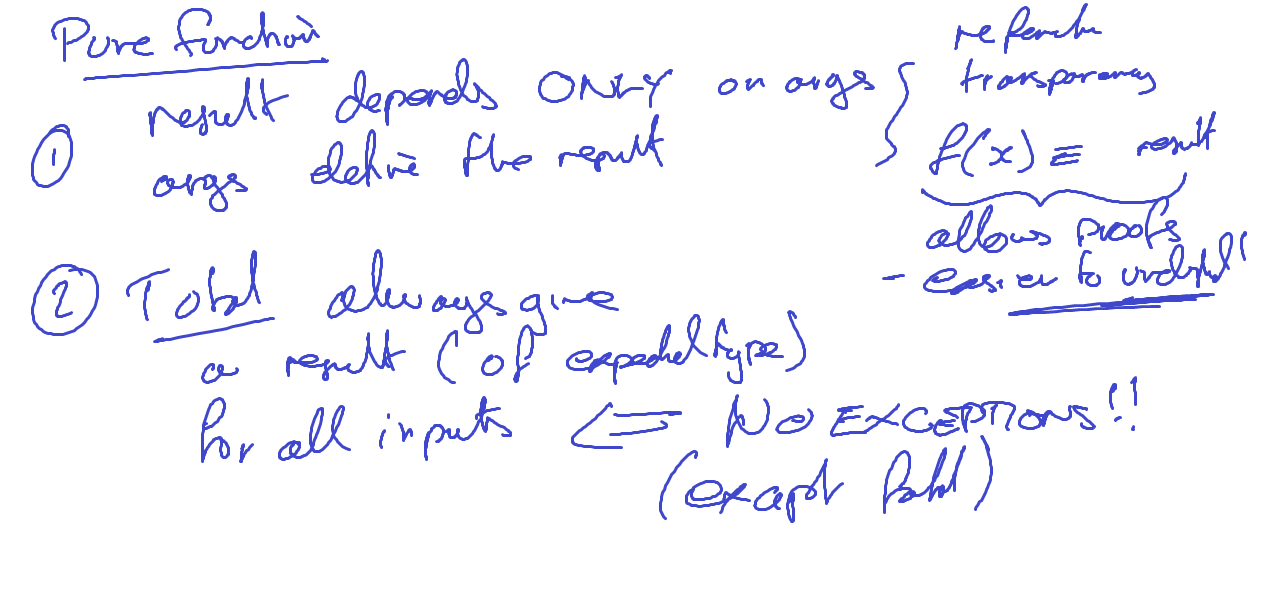 Pure function
① result depends ONLY on args
args define the result
referential
transparency
f(x) ≡ result
allows proofs
- easier to understand!
② Total always give
a result (of expected type)
for all inputs <= NO EXCEPTIONS!!
(except fatal)